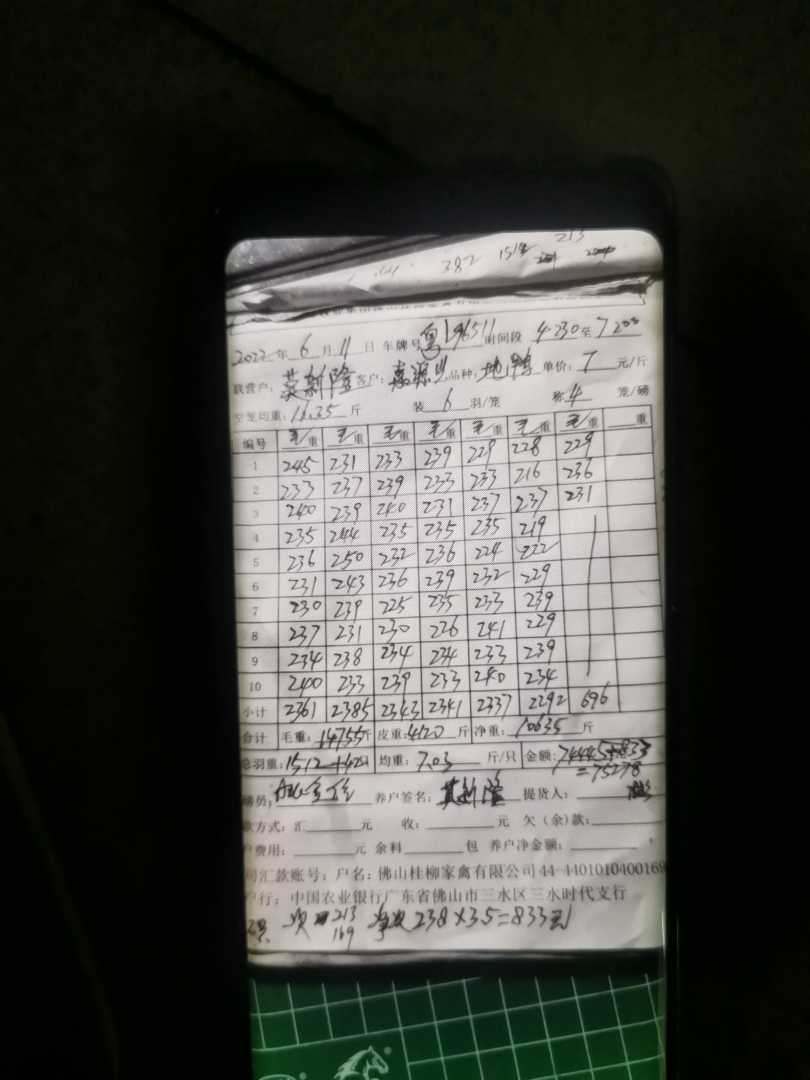 382 1512 213
2022年6月11日 车牌号 粤L96511 时间段 4:30至7:00
联营户：莫新隆 客户：嘉源兴 品种：地鸭 单价：7元/斤
空笼均重：斤 装6羽/笼 称4笼/磅
编号 毛重 毛重 毛重 毛重 毛重 毛重 毛重 重
1 245 231 233 239 229 228 229
2 233 237 239 233 233 216 236
3 240 239 240 231 237 237 231
4 235 244 235 235 235 219
5 236 250 232 236 224 222
6 231 243 236 239 232 229
7 230 239 225 235 233 239
8 237 231 230 226 241 229
9 234 238 234 234 233 239
10 240 233 239 233 240 234
小计 2361 2385 2343 2341 2337 2292 696
合计 毛重：14755斤 皮重：4120斤 净重：10635斤
总羽重：1512 均重：7.03斤/只 金额：74445+833
=75278
磅员： 养户签名：莫新隆 提货人：
款方式：汇元 收：元 欠（余）款：
户费用：元 余料包 养户净金额：
司汇款账号：户名：佛山桂柳家禽有限公司44-4401010400169
户行：中国农业银行广东省佛山市三水区三水时代支行
次 213 238×3.5=833元
169